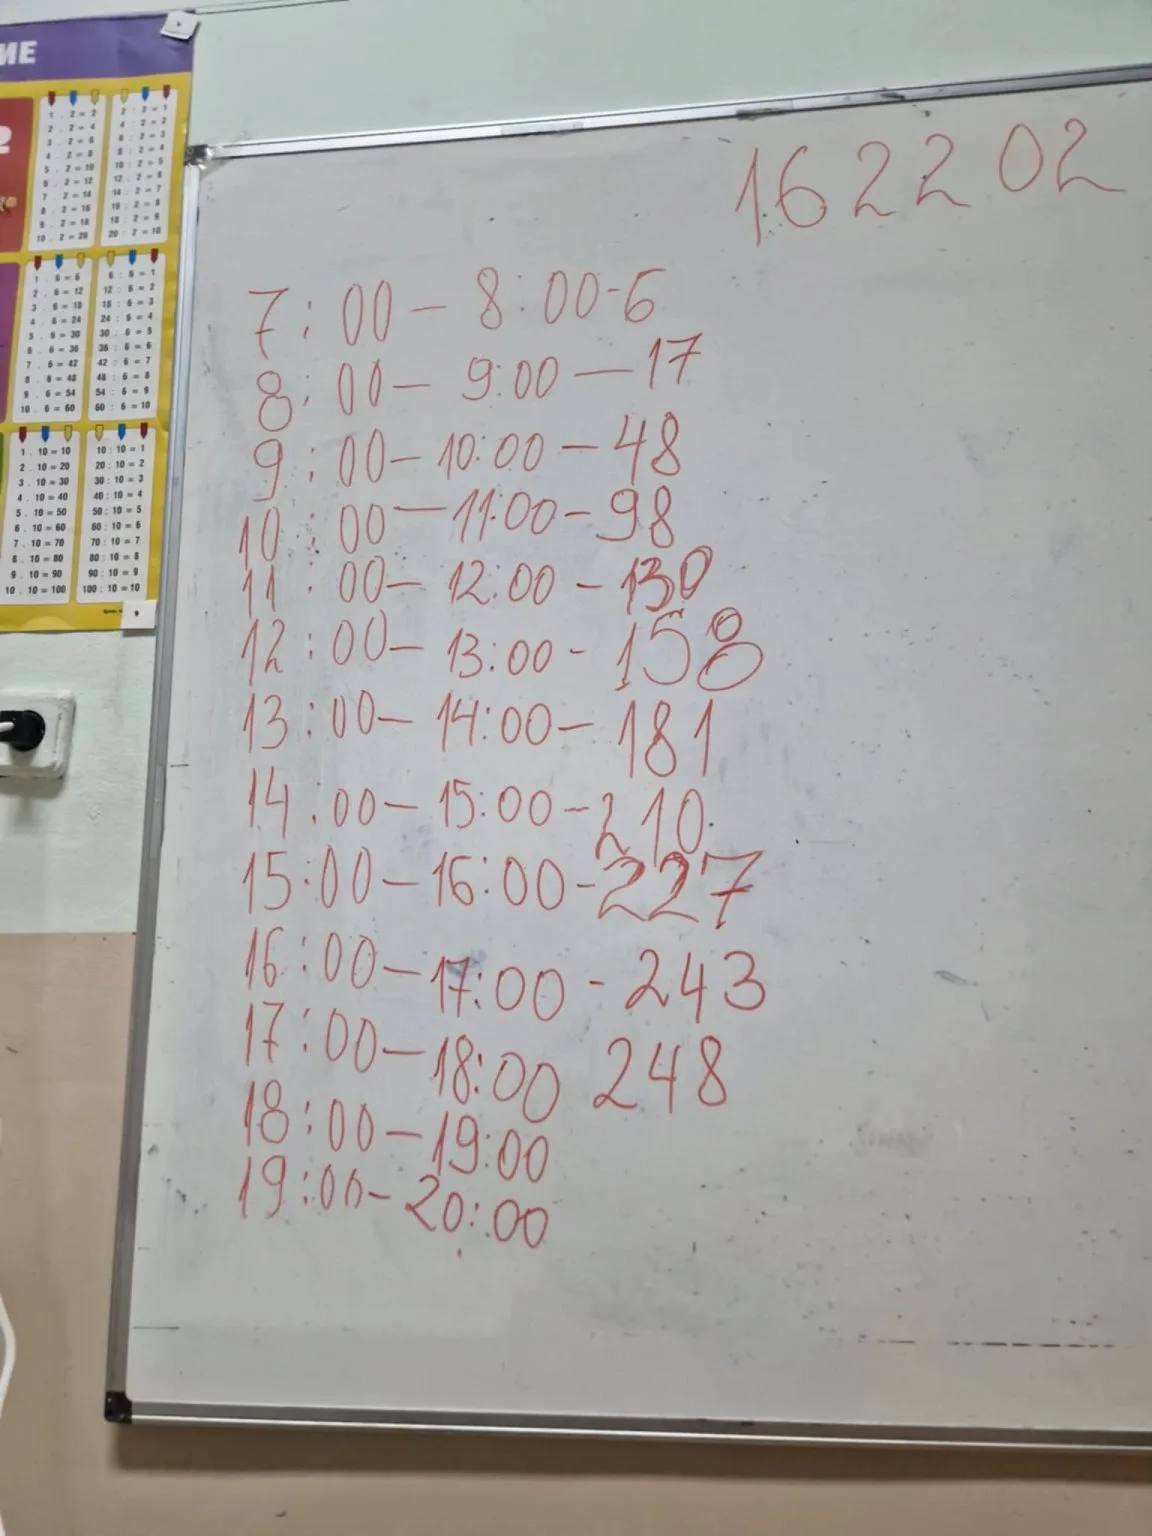 ИЕ
2
1 . 2 = 2
2 . 2 = 4
3 . 2 = 6
4 . 2 = 8
5 . 2 = 10
6 . 2 = 12
7 . 2 = 14
8 . 2 = 16
9 . 2 = 18
10 . 2 = 20
2 : 2 = 1
4 : 2 = 2
6 : 2 = 3
8 : 2 = 4
10 : 2 = 5
12 : 2 = 6
14 : 2 = 7
16 : 2 = 8
18 : 2 = 9
20 : 2 = 10
1 . 6 = 6
2 . 6 = 12
3 . 6 = 18
4 . 6 = 24
5 . 6 = 30
6 . 6 = 36
7 . 6 = 42
8 . 6 = 48
9 . 6 = 54
10 . 6 = 60
6 : 6 = 1
12 : 6 = 2
18 : 6 = 3
24 : 6 = 4
30 : 6 = 5
36 : 6 = 6
42 : 6 = 7
48 : 6 = 8
54 : 6 = 9
60 : 6 = 10
1 . 10 = 10
2 . 10 = 20
3 . 10 = 30
4 . 10 = 40
5 . 10 = 50
6 . 10 = 60
7 . 10 = 70
8 . 10 = 80
9 . 10 = 90
10 . 10 = 100
10 : 10 = 1
20 : 10 = 2
30 : 10 = 3
40 : 10 = 4
50 : 10 = 5
60 : 10 = 6
70 : 10 = 7
80 : 10 = 8
90 : 10 = 9
100 : 10 = 10
162202
7:00 – 8:00-6
8:00 – 9:00 – 17
9:00 – 10:00 – 48
10:00 – 11:00 – 98
11:00 – 12:00 – 130
12:00 – 13:00 - 158
13:00 – 14:00 – 181
14:00 – 15:00 - 210
15:00 – 16:00 - 227
16:00 – 17:00 - 243
17:00 – 18:00 248
18:00 – 19:00
19:00 – 20:00